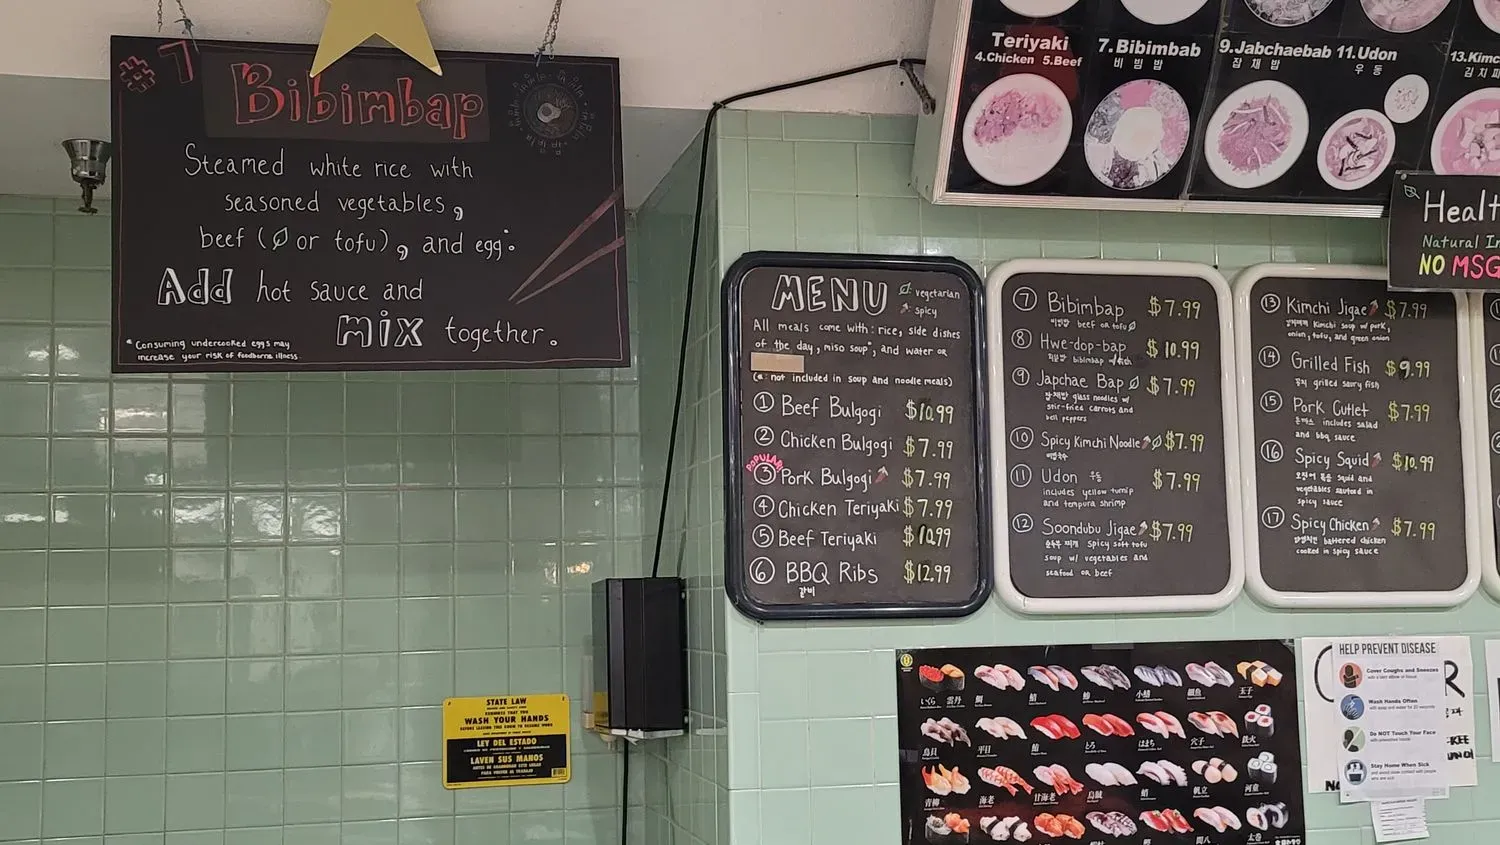 #7
Bibimbap
Steamed white rice with
seasoned vegetables,
beef (or tofu), and egg*.
Add hot sauce and
mix together.
* Consuming undercooked eggs may
increase your risk of foodborne illness.
STATE LAW
REQUIRES THAT YOU
WASH YOUR HANDS
BEFORE LEAVING THIS ROOM TO RESUME WORK
LEY DEL ESTADO
LAVEN SUS MANOS
ANTES DE
PARA VOLVER AL TRABAJO
Teriyaki
4.Chicken 5.Beef
7.Bibimbab
비 빔 밥
9.Jabchaebab
잡 채 밥
11.Udon
우 동
13.Kimc
김 치 찌
Healt
Natural In
NO MSG
MENU
vegetarian
spicy
All meals come with: rice, side dishes
of the day, miso soup*, and water or
(*: not included in soup and noodle meals)
① Beef Bulgogi $10.99
② Chicken Bulgogi $7.99
POPULAR!
③ Pork Bulgogi $7.99
④ Chicken Teriyaki $7.99
⑤ Beef Teriyaki $10.99
⑥ BBQ Ribs $12.99
갈비
⑦ Bibimbap $7.99
비빔밥 beef or tofu
⑧ Hwe-dop-bap $10.99
회덮밥 bibimbap w/fish
⑨ Japchae Bap $7.99
잡채밥 glass noodles w/
stir-fried carrots and
bell peppers
⑩ Spicy Kimchi Noodle $7.99
비빔국수
⑪ Udon 우동 $7.99
includes yellow turnip
and tempura shrimp
⑫ Soondubu Jigae $7.99
순두부 찌개 spicy soft tofu
soup w/ vegetables and
seafood or beef
⑬ Kimchi Jigae $7.99
김치찌개 kimchi soup w/ pork,
onion, tofu, and green onion
⑭ Grilled Fish $9.99
꽁치 grilled saury fish
⑮ Pork Cutlet $7.99
돈까스 includes salad
and bbq sauce
⑯ Spicy Squid $10.99
오징어 볶음 squid and
vegetables sauteed in
spicy sauce
⑰ Spicy Chicken $7.99
battered chicken
cooked in spicy sauce
いくら 雲丹 鯛 鯖 鯵 小鰭 細魚 玉子
鳥貝 平目 鮪 とろ はまち 穴子 鉄火
青柳 海老 甘海老 烏賊 蛸 帆立 河童
太巻
HELP PREVENT DISEASE
Cover Coughs and Sneezes
Wash Hands Often
Do NOT Touch Your Face
Stay Home When Sick